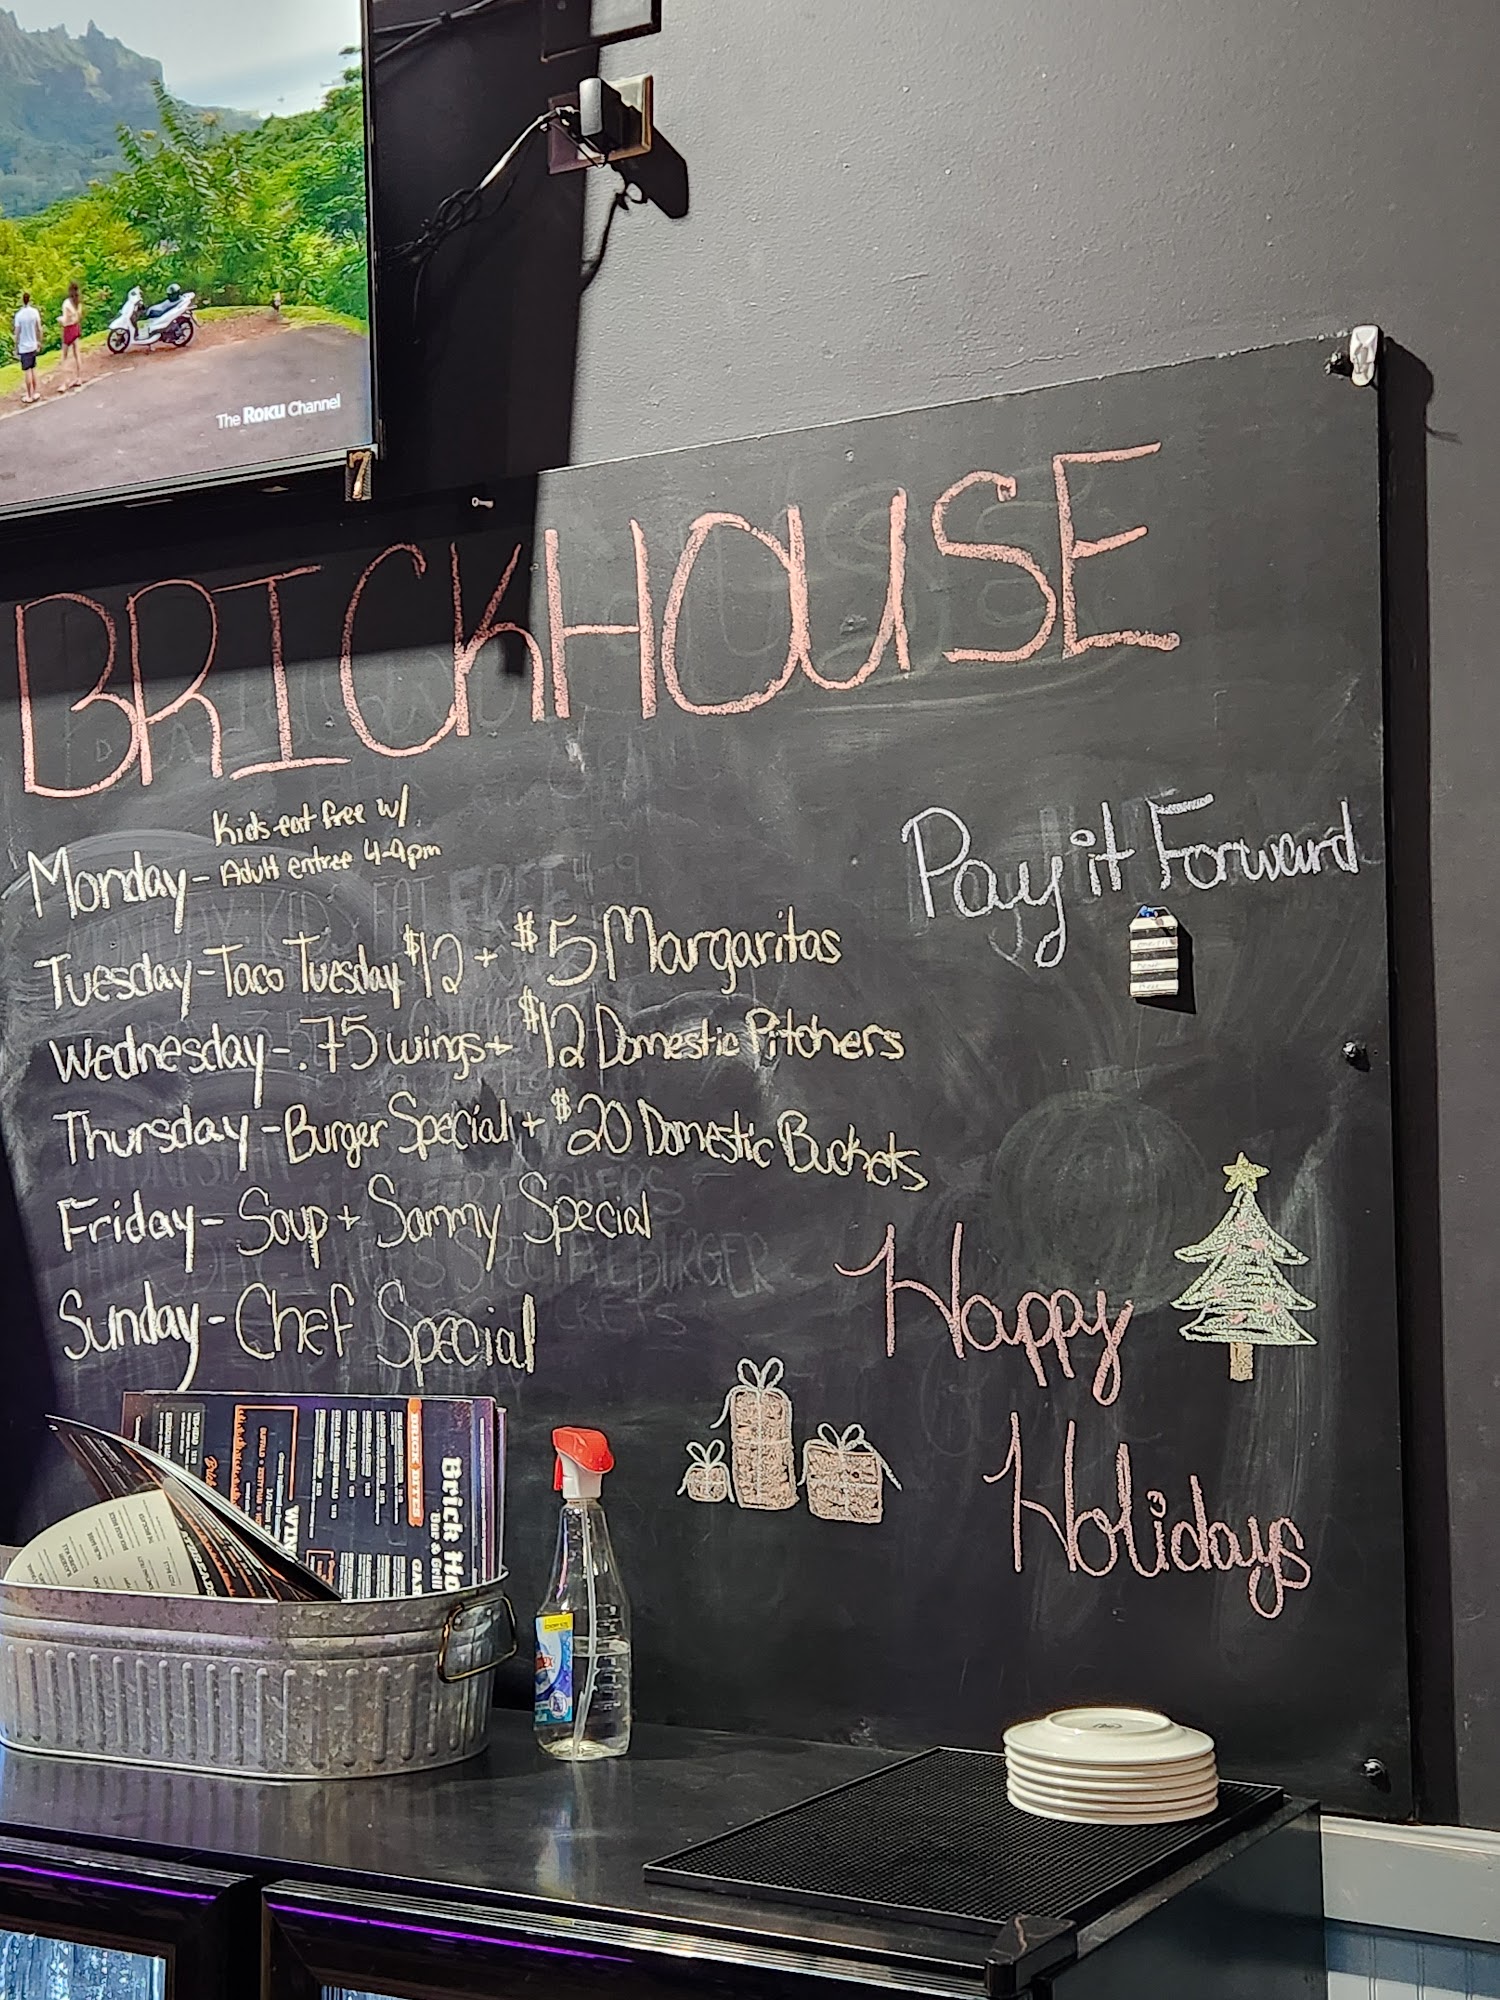 The Roku Channel
7
BRICKHOUSE
Kids eat free w/
Monday - Adult entree 4-9pm
Tuesday - Taco Tuesday $12 + $5 Margaritas
Wednesday - .75 wings + $12 Domestic Pitchers
Thursday - Burger Special + $20 Domestic Buckets
Friday - Soup + Sammy Special
Sunday - Chef Special
Pay it Forward
Happy
Holidays
BRICK BITES
Brick Ho
Bar & Grill
WIN